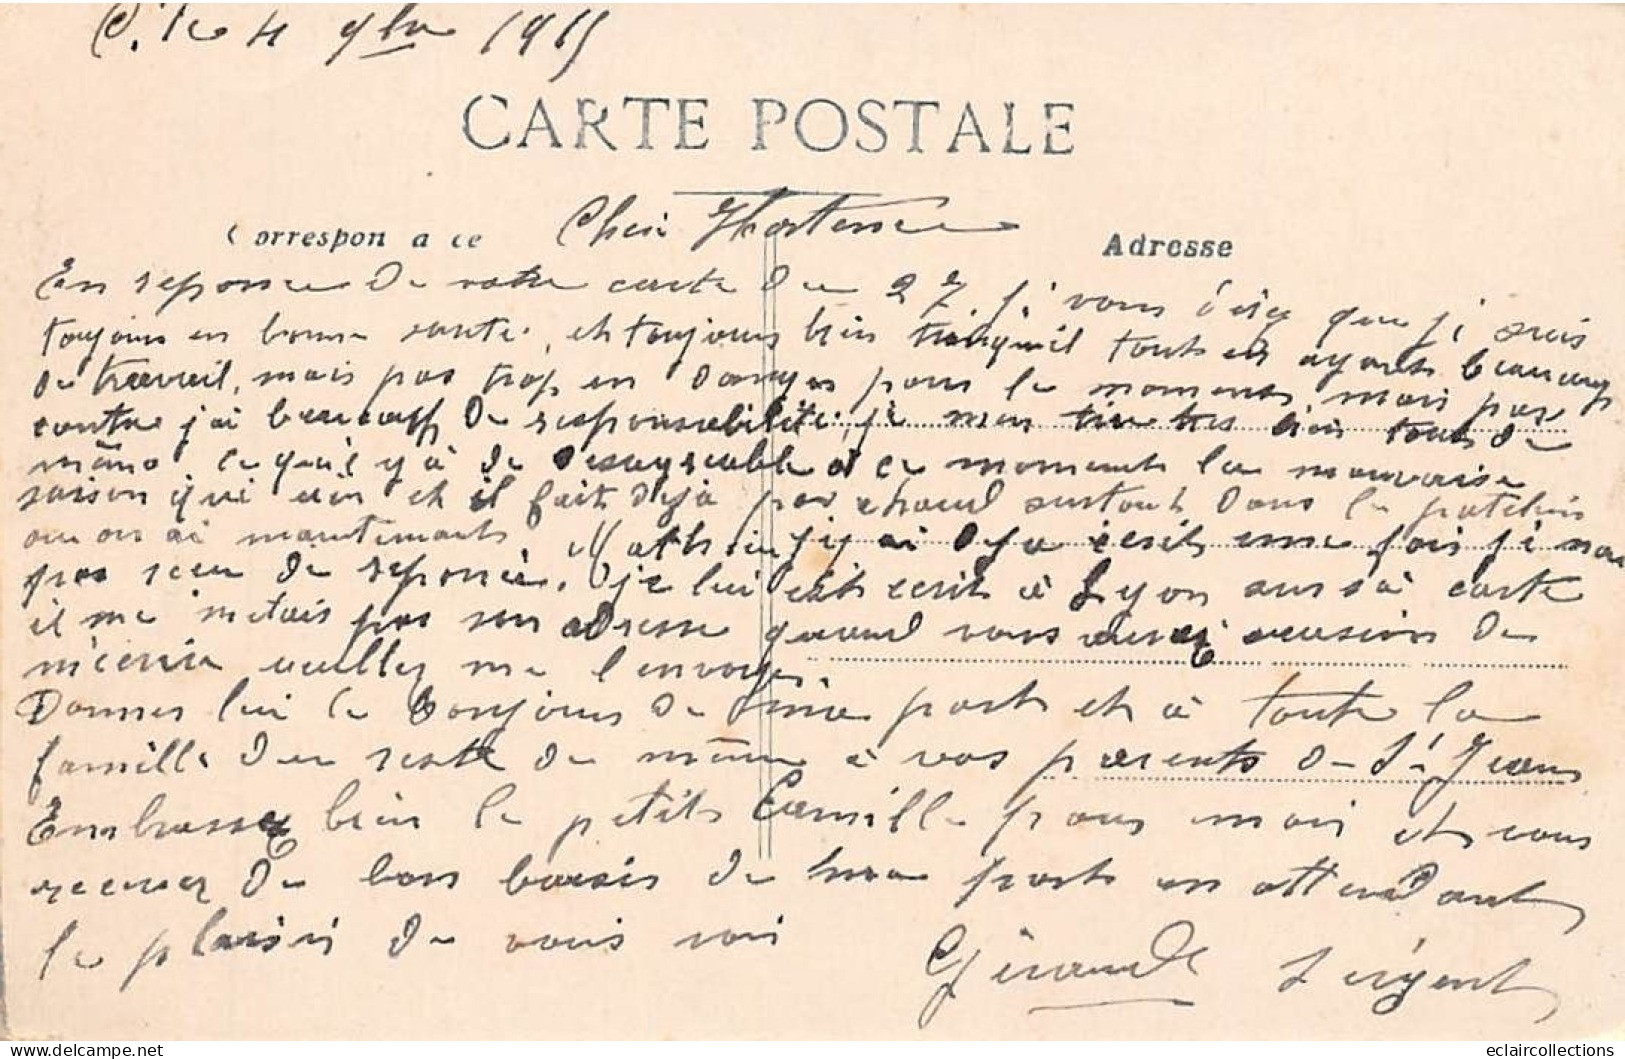 le 4 9bre 1915
CARTE POSTALE
Correspondance
Chère Hortense
Adresse
En reponse de votre carte du 27 je vous direz que je suis
toujours en bonne santé, et toujours bien tranquil tout en ayant beaucoup
de travail, mais pas trop en danger pour le moment, mais par
contre j'ai beaucoup de responsabilité, je men tire très bien tout de
même, ce qu'il y a de desagreable a ce moment la mauvaise
saison qui vien et il fait deja pas chaud surtout dans le patelin
ou on ai maintenant Mathieu j'y ai deja ecrit une fois je nai
pas reçu de reponse, je lui ait ecrit a Lyon sur sa carte
il me metais pas son adresse quand vous aurez occasion de
m'ecrire veuillez me l'envoyer.
Donnez lui le bonjour de ma part et à toute la
famille du reste de même à vos parents de St Jean
Embrassez bien le petit Camille pour moi et vous
recevez de bon baisés de ma part en attendant
le plaisir de vous voir
Giraud Sergent
eclaircollections
www.delcampe.net